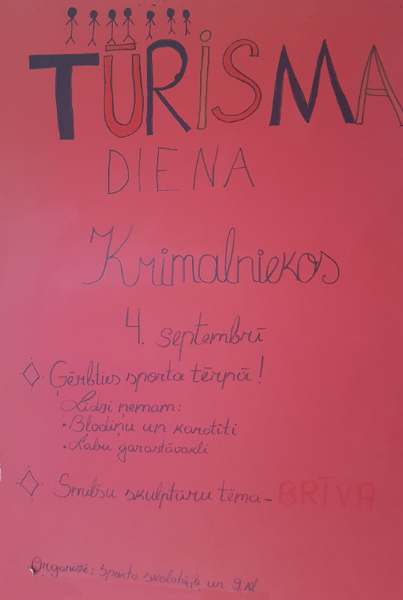 TŪRISMA
DIENA
Krimalniekos
4. septembrī
Ģērbties sporta tērpā!
Līdzi ņemam:
• Bļodiņu un karotīti
• Labu garastāvokli
Smilšu skulptūru tēma - BRĪVA
Organizē: Sporta skolotāja un 9. kl.